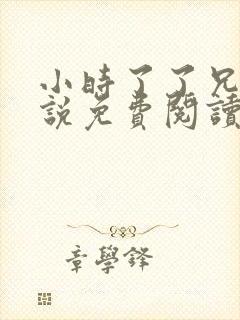 小時了了兄
說免費閱讀
章學鋒